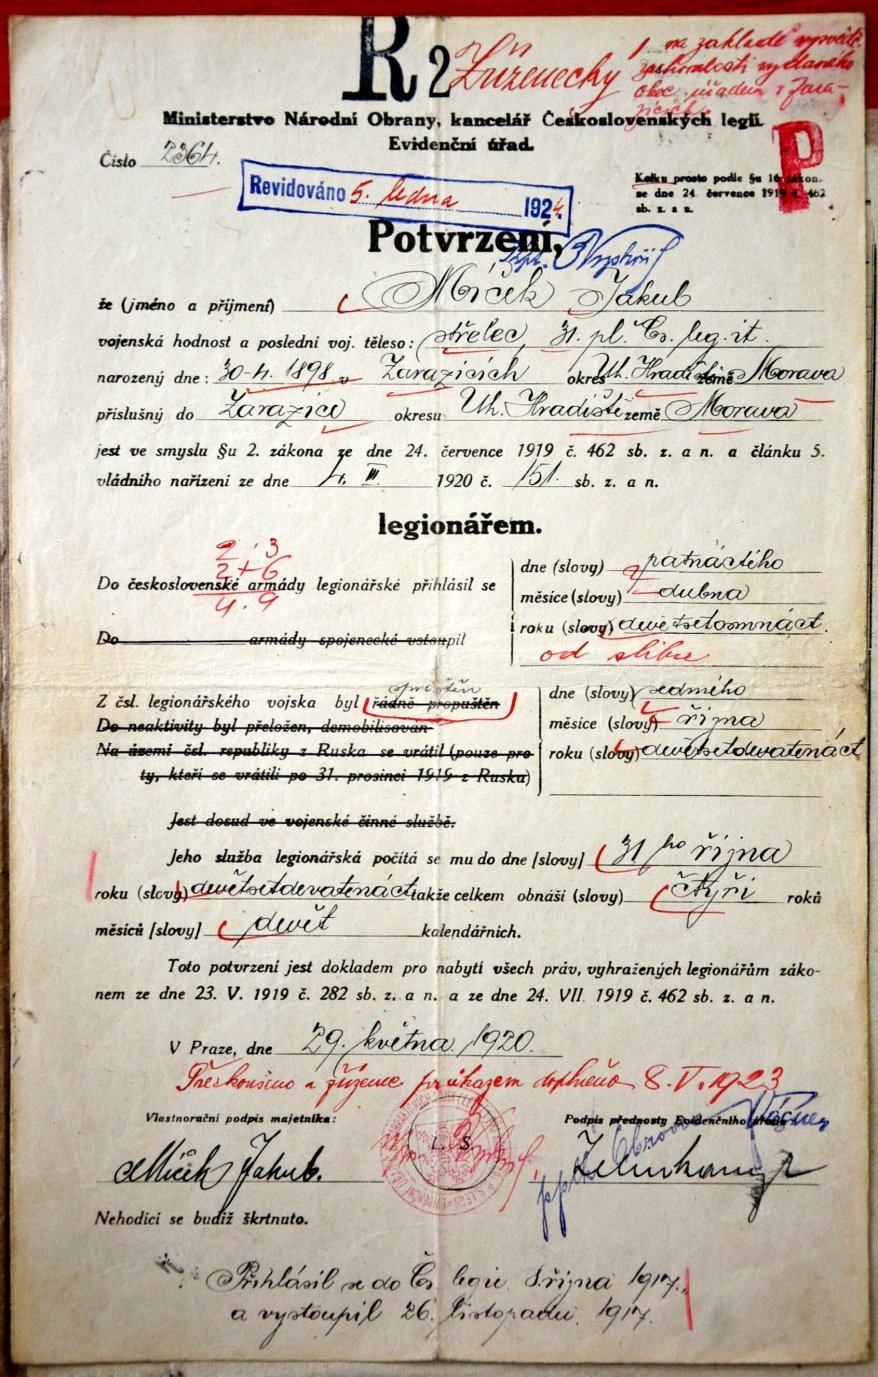 R 2 Zúženecký 1. na základě
vydaného
obec. úřadem v Zara-
zicích
Ministerstvo Národní Obrany, kancelář Československých legií.
Evidenční úřad.
Číslo 2364.
Kolku prosto podle §u 16 zákon.
ze dne 24. července 1919 č. 462
sb. z. a n.
P
Revidováno 5. ledna 1924.
Potvrzení,
že (jméno a příjmení) Míček Jakub
vojenská hodnost a poslední voj. těleso: střelec 31. pl. Čs. leg. it.
narozený dne: 30-4. 1898. v Zarazicích okres Uh. Hradiště země Morava
příslušný do Zarazice okresu Uh. Hradiště země Morava
jest ve smyslu §u 2. zákona ze dne 24. července 1919 č. 462 sb. z. a n. a článku 5.
vládního nařízení ze dne 4. III. 1920 č. 151. sb. z. a n.
legionářem.
2 3
2 + 6
4. 9
Do československé armády legionářské přihlásil se
dne (slovy) patnáctého
měsíce (slovy) dubna
roku (slovy) devětsetosmnáct.
od slibu
Do armády spojenecké vstoupil
Z čsl. legionářského vojska byl řádně propuštěn
Do neaktivity byl přeložen, demobilisován
Na území čsl. republiky z Ruska se vrátil (pouze pro
ty, kteří se vrátili po 31. prosinci 1919 z Ruska)
dne (slovy) sedmého
měsíce (slovy) října
roku (slovy) devětsetdevatenáct
Jest dosud ve vojenské činné službě.
Jeho služba legionářská počítá se mu do dne [slovy] 31 ho října
roku (slovy) devětsetdevatenáct takže celkem obnáší (slovy) čtyři roků
měsíců [slovy] devět kalendářních.
Toto potvrzení jest dokladem pro nabytí všech práv, vyhražených legionářům záko-
nem ze dne 23. V. 1919 č. 282 sb. z. a n. a ze dne 24. VII. 1919 č. 462 sb. z. a n.
V Praze, dne 29. května 1920.
Přezkoušeno a průkazem doplněno 8. V. 1923
Vlastnoruční podpis majetníka:
Podpis přednosty Evidenčního úřadu
Míček Jakub.
L. S.
Nehodící se budiž škrtnuto.
Přihlásil se do Čs legie 8. října 1917.
a vystoupil 26. listopadu 1917.